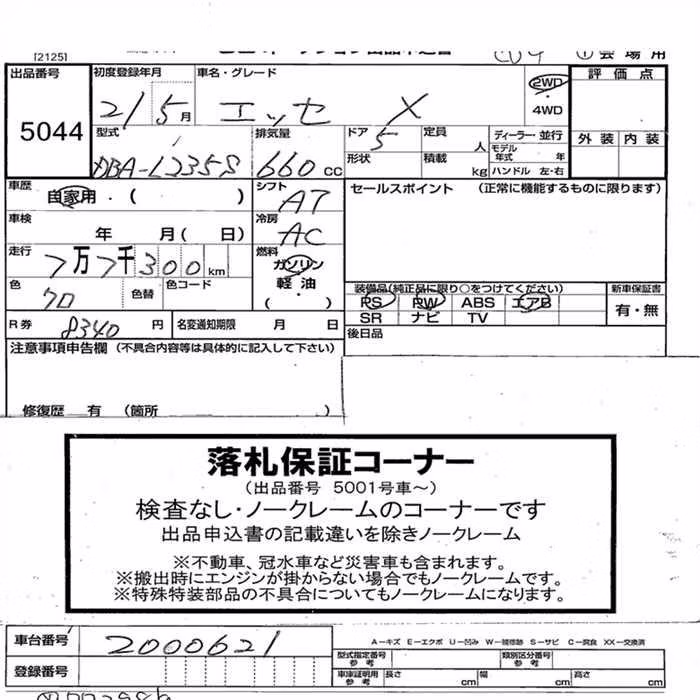 [2125]
①会場用
出品番号 5044
初度登録年月 21 5月
車名・グレード エッセ X
2WD・4WD
評価点
外装 内装
型式 DBA-L235S
排気量 660cc
ドア 5
定員 人
ディーラー・並行
形状
積載 kg
モデル年式 年
ハンドル 左・右
車歴 自家用・( )
シフト AT
セールスポイント (正常に機能するものに限ります)
車検 年 月( 日)
冷房 AC
走行 7万7千300km
燃料 ガソリン 軽油・( )
色 クロ
色替
色コード
装備品(純正品に限り○をつけてください)
PS PW ABS エアB
SR ナビ TV
新車保証書 有・無
R券 8340円
名変通知期限 月 日
後日品
注意事項申告欄 (不具合内容等は具体的に記入して下さい)
修復歴 有 (箇所 )
落札保証コーナー
(出品番号 5001号車～)
検査なし・ノークレームのコーナーです
出品申込書の記載違いを除きノークレーム
※不動車、冠水車など災害車も含まれます。
※搬出時にエンジンが掛からない場合でもノークレームです。
※特殊特装部品の不具合についてもノークレームになります。
車台番号 2000621
A-キズ E-エクボ U-凹み W-補修跡 S-サビ C-腐食 XX-交換済
型式指定番号 参考
類別区分番号 参考
登録番号
車庫証明用 参考 長さ cm 幅 cm 高さ cm